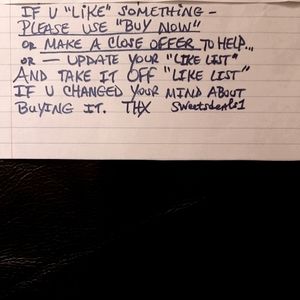 IF U "LIKE" SOMETHING -
PLEASE USE "BUY NOW"
OR MAKE A CLOSE OFFER TO HELP...
OR — UPDATE YOUR "LIKE LIST"
AND TAKE IT OFF "LIKE LIST"
IF U CHANGED YOUR MIND ABOUT
BUYING IT. THX